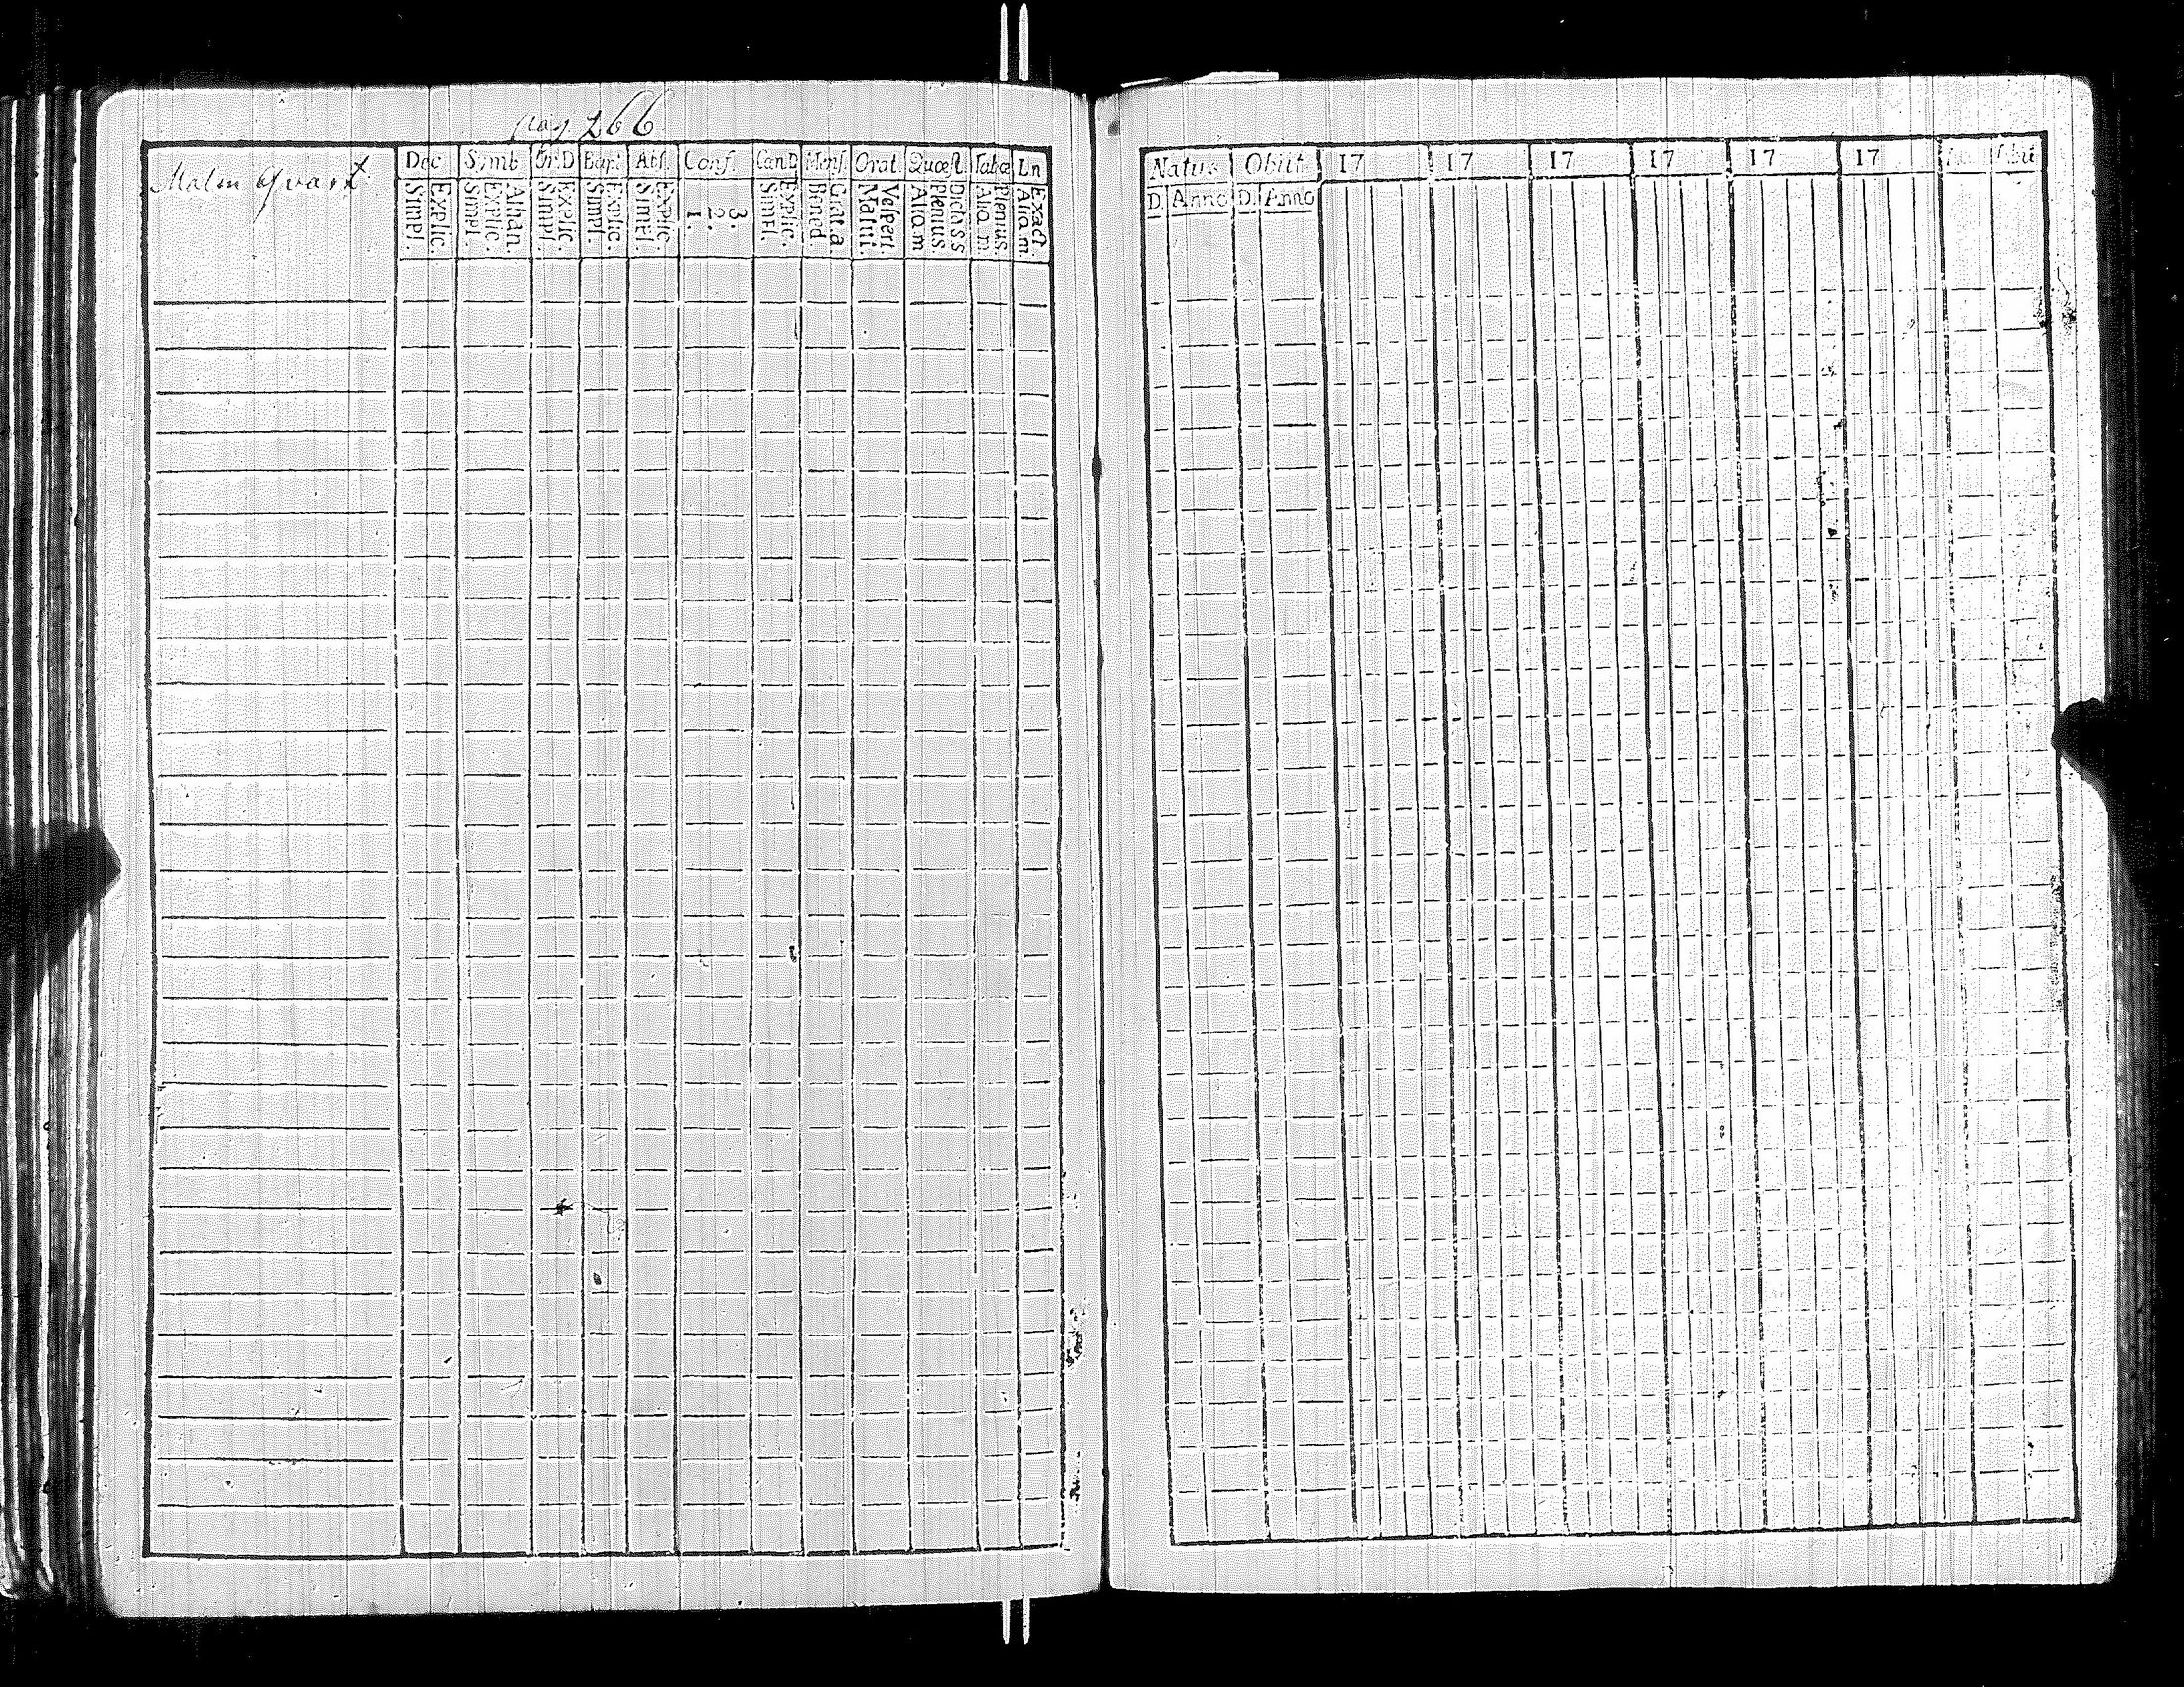 pag 266
Malm Qvart
Dec Simb Or.D Bapt Abs. Conf. Can.D Mens. Orat. Quæst. Tabœ Ln
Simpl. Explic. Simpl. Explic. Athan. Simpl. Explic. Simpl. Explic. Simpl. Explic. 1. 2. 3. Simpl. Explic. Bened. Grat.a Matut. Vesperi. Aliqm Plenius D.Class Aliq.m Plenius. Aliq.m. Exact.
Natus Obiit 17 17 17 17 17 17
D. Anno D. Anno